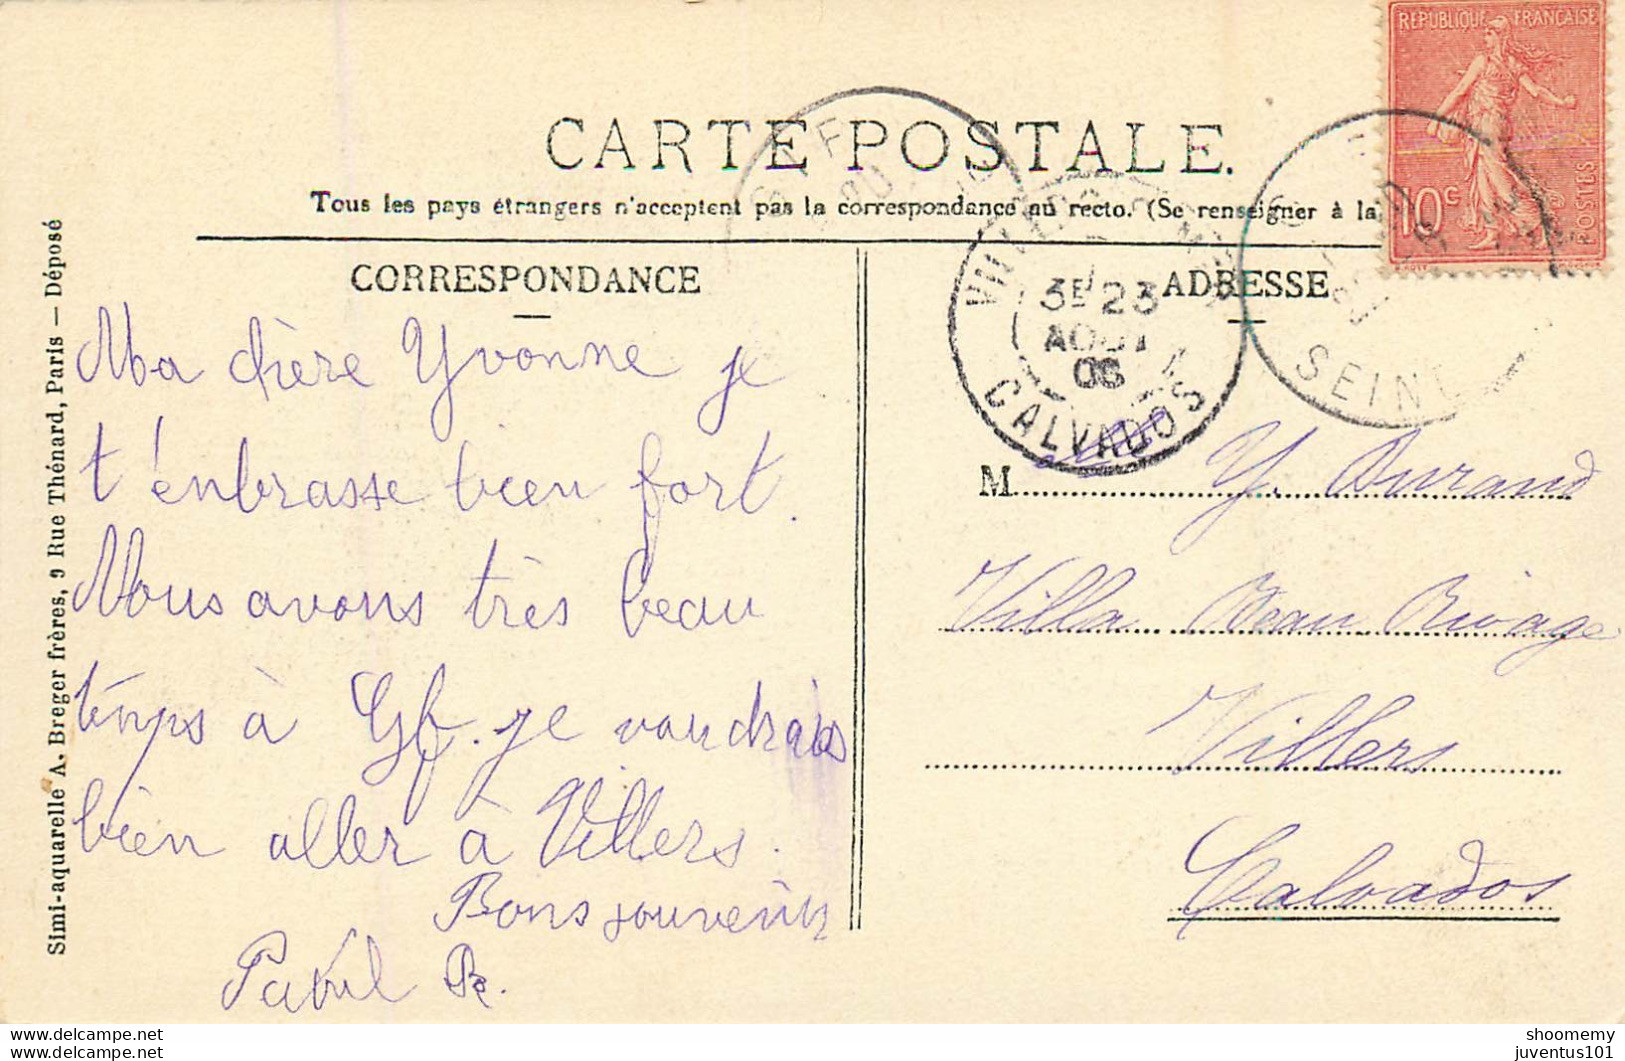 RÉPUBLIQUE FRANÇAISE
10c
POSTES
CARTE POSTALE.
Tous les pays étrangers n'acceptent pas la correspondance au recto. (Se renseigner à la
CORRESPONDANCE
ADRESSE
3E 23
AOUT
06
CALVADOS
SEINE
Simi-aquarelle A. Breger frères, 9 Rue Thénard, Paris — Déposé
Ma chère Yvonne je
t'énbrasse bien fort.
Nous avons très beau
témps à Gf. je voudrais
bien aller à Villers.
Bons souvenirs
Paul R.
M
Y. Durand
Villa Beau Rivage
Villers
Calvados
www.delcampe.net
shoomemy
juventus101